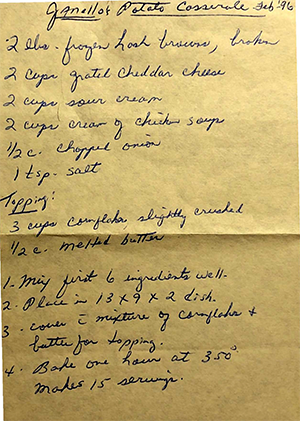 Janello's Potato Casserole Feb '96
2 lbs. frozen hash browns, broken
2 cups grated cheddar cheese
2 cups sour cream
2 cups cream of chicken soup
1/2 c. chopped onion
1 tsp. salt
Topping:
3 cups cornflakes slightly crushed
1/2 c. melted butter
1- Mix first 6 ingredients well-
2. Place in 13 x 9 x 2 dish.
3. cover c̄ mixture of cornflakes +
butter for topping.
4. Bake one hour at 350°
Makes 15 servings.